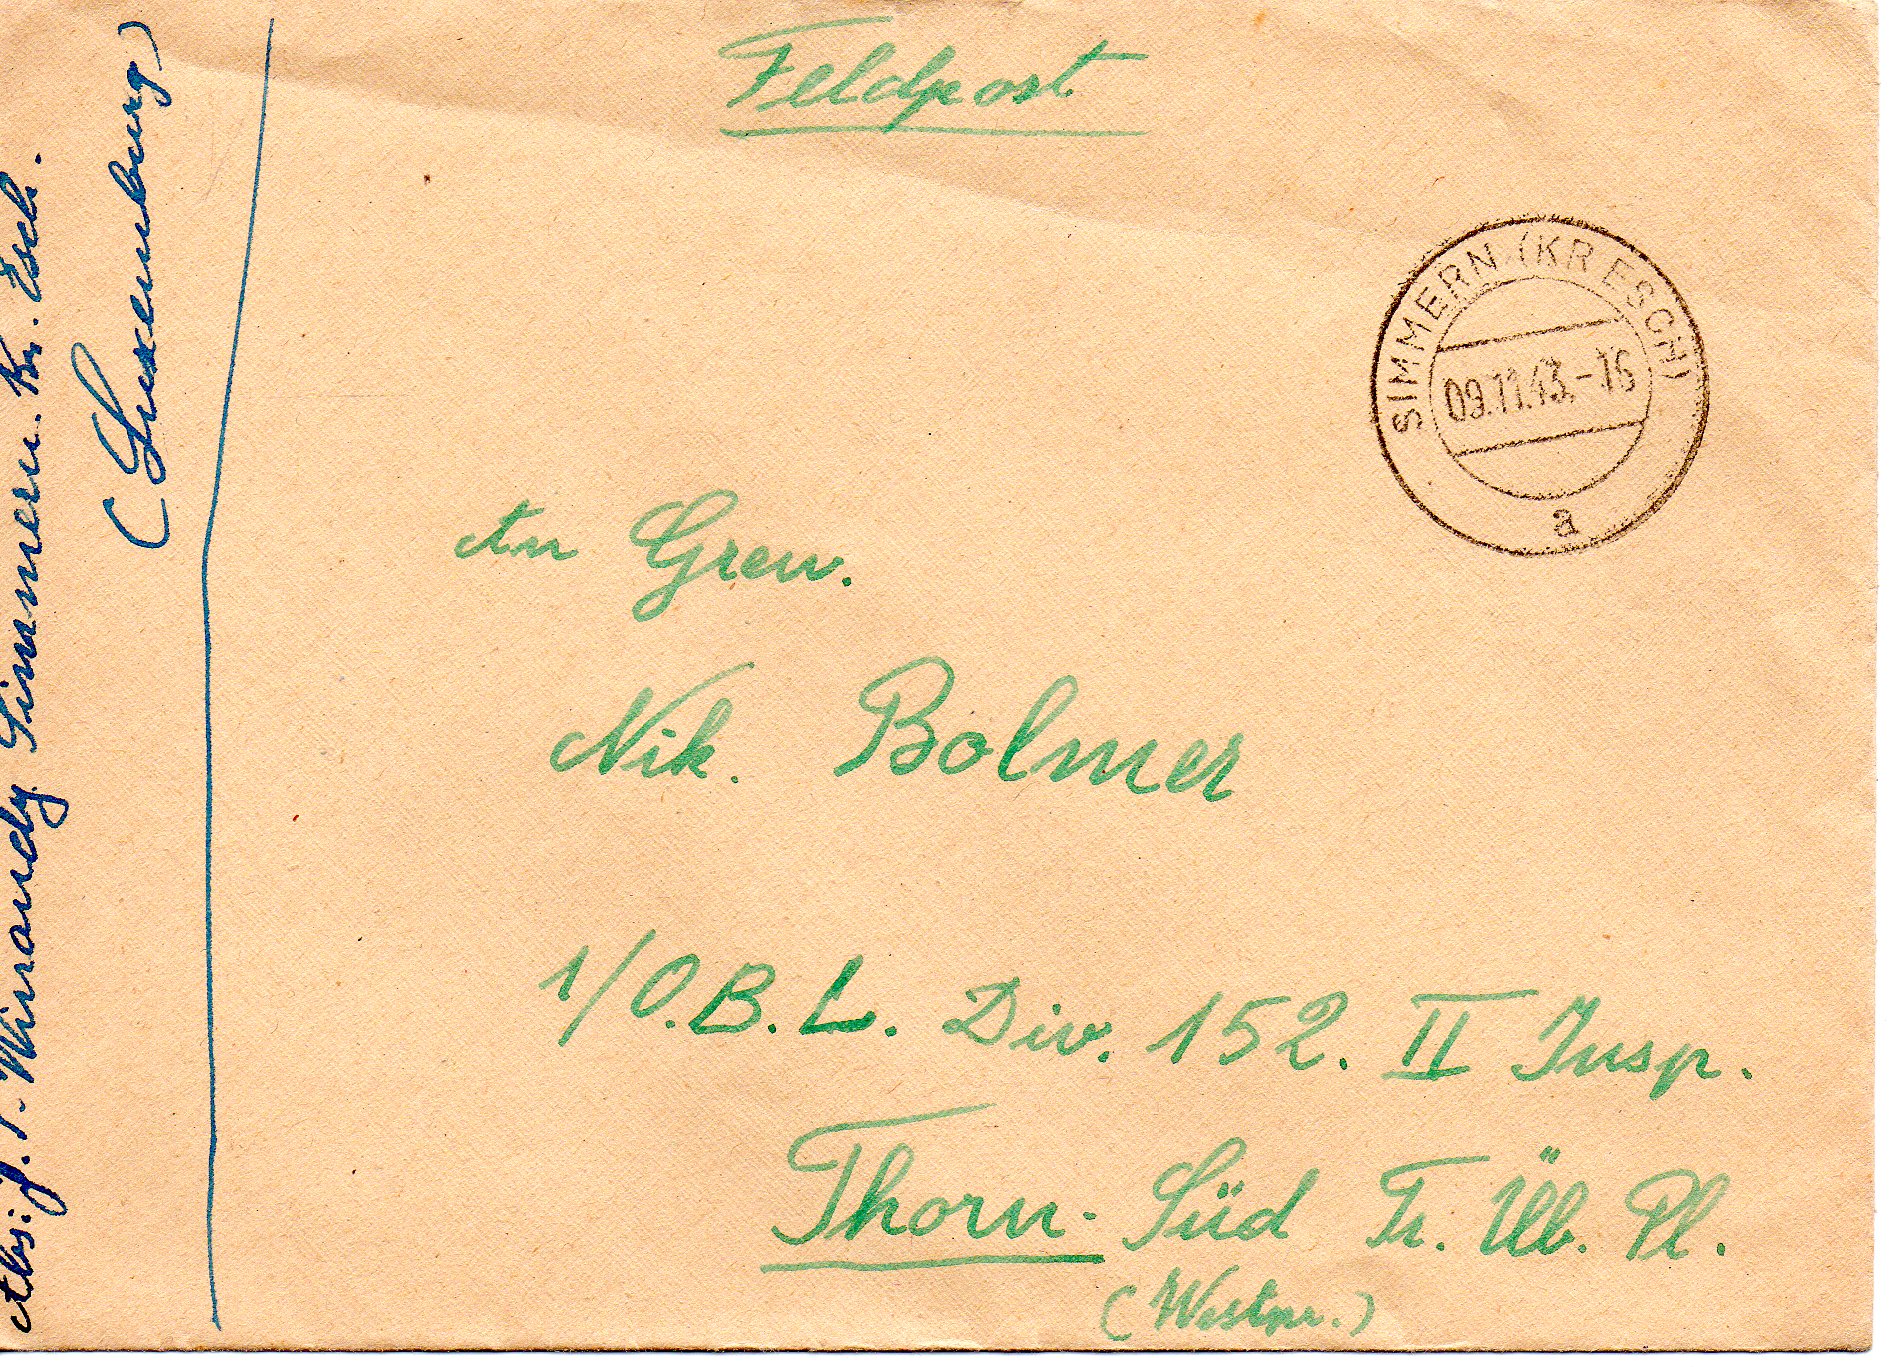 Feldpost
SIMMERN (KR ESCH)
09.11.43.-16
a
An Gren.
Nik. Bolmer
1/O.B.L. Div. 152. II Insp.
Thorn-Süd Tr. Üb. Pl.
(Westpr.)
Abs: J. P. Winandy Simmern. Kr. Esch.
(Luxemburg)